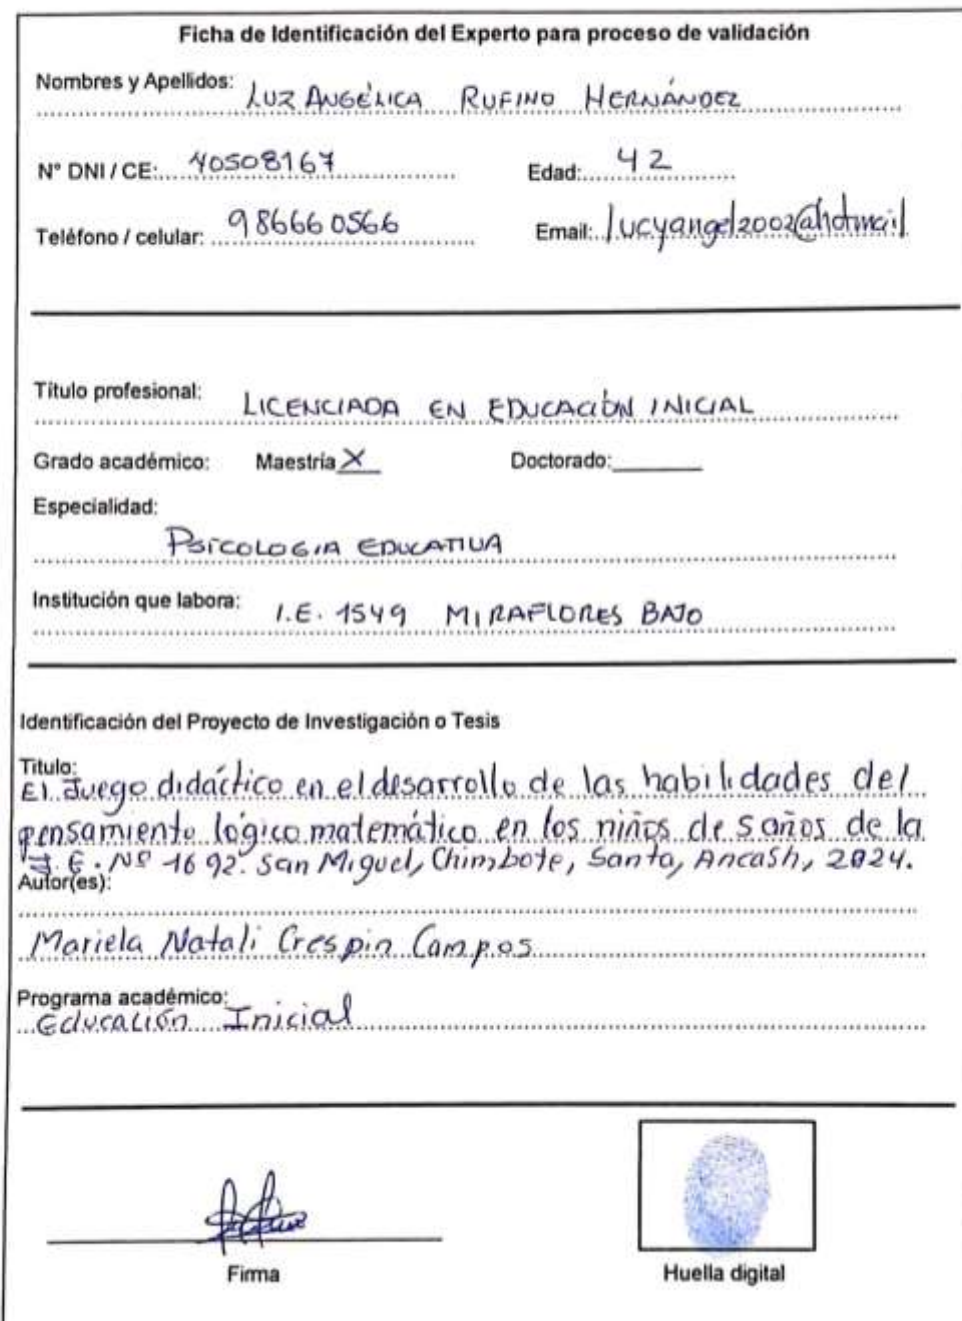 Ficha de Identificación del Experto para proceso de validación
Nombres y Apellidos: LUZ ANGÉLICA RUFINO HERNÁNDEZ
N° DNI / CE: 40508167 Edad: 42
Teléfono / celular: 986660566 Email: lucyangel2002@hotmail
Título profesional: LICENCIADA EN EDUCACIÓN INICIAL
Grado académico: Maestría X Doctorado:
Especialidad:
PSICOLOGIA EDUCATIVA
Institución que labora: I.E. 1549 MIRAFLORES BAJO
Identificación del Proyecto de Investigación o Tesis
Título:
El Juego didáctico en el desarrollo de las habilidades del
pensamiento lógico matemático en los niños de 5 años de la
I.E. Nº 1692. San Miguel, Chimbote, Santa, Ancash, 2024.
Autor(es):
Mariela Natali Crespin Campos
Programa académico:
Educación Inicial
Firma Huella digital